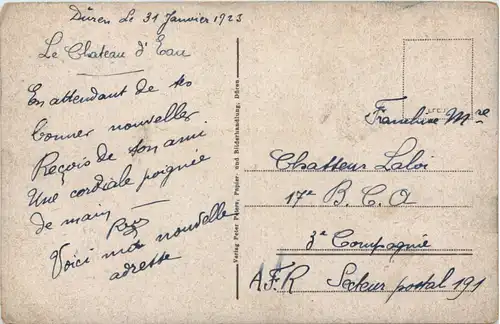 Düren le 31 Janvier 1923
Le Chateau d'Eau
En attendant de tes
bonner nouvelles
Reçois de ton ami
Une cordiale poignée
de main
Voici ma nouvelle
adresse
Verlag Peter Papier- und Bilderhandlung, Düren.
Franchise Mre
Chasseur Laloi
17e B.C.A
3e Compagnie
A.F.R Secteur postal 191